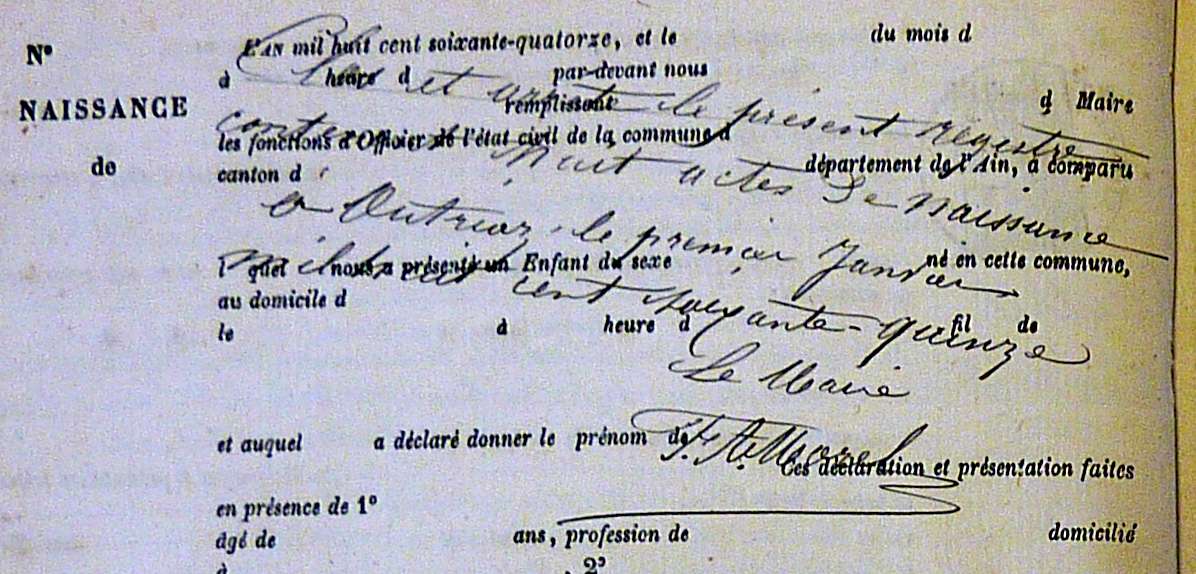 N°
NAISSANCE
de
L'AN mil huit cent soixante-quatorze, et le du mois d
à heure d par-devant nous
remplissant d Maire
les fonctions d'Officier de l'état civil de la commune d
département de l'Ain, a comparu
canton d
l quel nous a présenté un Enfant du sexe né en cette commune,
au domicile d
le à heure d fil de
et auquel a déclaré donner le prénom de
Ces déclaration et présentation faites
en présence de 1°
âgé de ans, profession de domicilié
à , 2°
Clos et arrêté le présent registre
contenant huit actes de naissance
a Outriaz, le premier Janvier
mil huit cent soixante-quinze
Le Maire
F. A. Morel